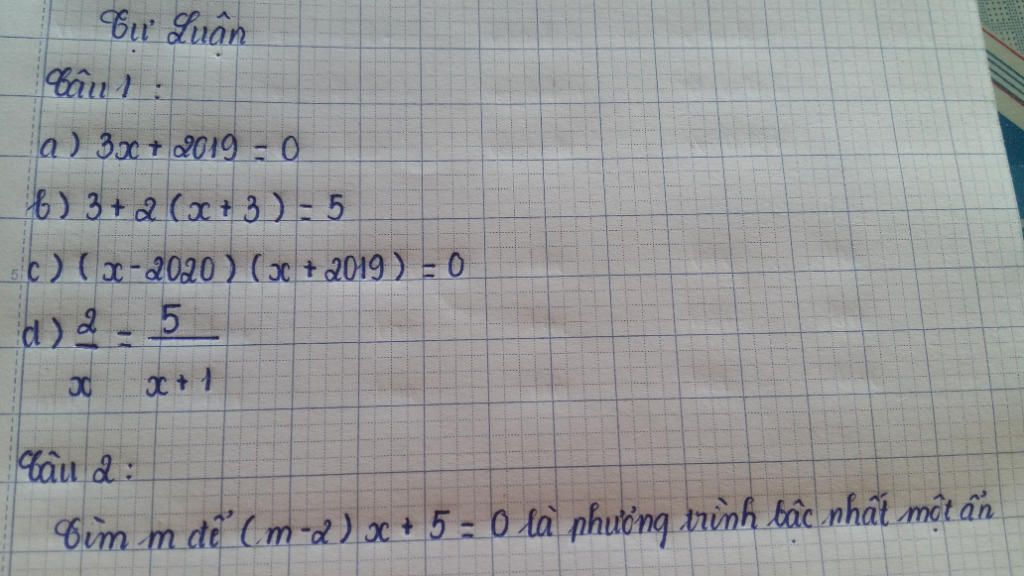 Tự Luận
Câu 1 :
a) 3x + 2019 = 0
b) 3 + 2 (x + 3) = 5
c) (x - 2020) (x + 2019) = 0
d) 2/x = 5/(x + 1)
Câu 2 :
Tìm m để (m - 2) x + 5 = 0 là phương trình bậc nhất một ẩn